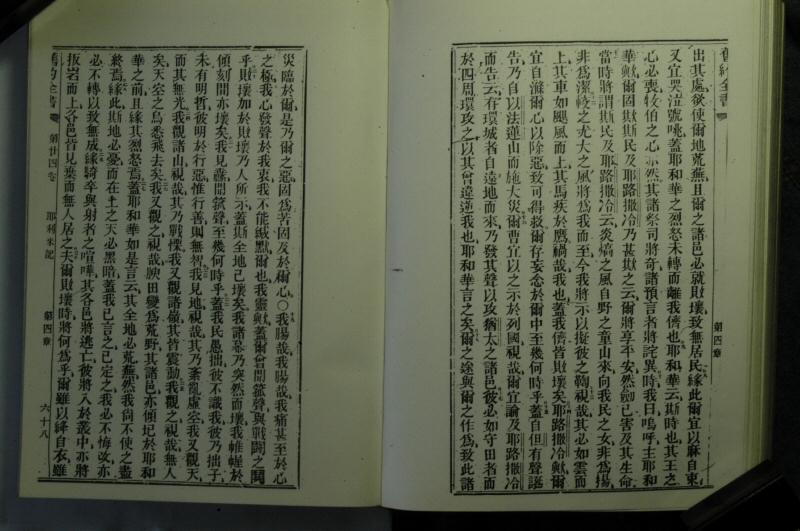 舊約全書
第四章
出其處欲使爾地荒蕪且爾之諸邑必就敗壞致無居民緣此爾宜以麻自束
又宜哭泣號咷蓋耶和華之烈怒未轉而離我儕也耶和華云斯時也其王之
心必喪牧伯之心亦然其諸祭司將奇諸預言者將詫異時我曰嗚呼主耶和
華歟爾固欺斯民及耶路撒冷乃甚欺之云爾將享平安然劍已害及其生命
當時將謂斯民及耶路撒冷云炎熇之風自野之童山來向我民之女非爲揚
非爲潔較之尤大之風將爲我而至今我將示以擬彼之鞫視哉其必如雲而
上其車如颶風而上其馬疾於鷹禍哉我也蓋我儕皆敗壞矣耶路撒冷歟爾
宜自滌爾心以除惡致可得救爾存妄念於爾中至幾何時乎蓋自但有聲誕
告乃自以法蓮山而施大災爾曹宜以之示於列國視哉爾宜諭及耶路撒冷
而告云有環城者自遠地而來乃發其聲以攻猶太之諸邑彼必如守田者而
於四周環攻之以其曾違逆我也耶和華言之矣爾之途與爾之作爲致此諸
災臨於爾是乃爾之惡因爲苦因及於爾心〇我腸哉我腸哉我痛甚至於心
之極我心發聲於我衷我不能緘默爾也我靈歟蓋爾曾聞箛聲與戰鬭之鬨
乎敗壞加於敗壞乃人所示蓋斯全地已壞矣我諸幕乃突然而壞我帷幄於
傾刻間亦壞矣我見纛聞箛聲至幾何時乎蓋我民愚拙彼不識我彼乃拙子
未有明哲彼明於行惡惟行善則無智我見地視哉其乃紊亂虛空我又觀天
而其無光我觀諸山視哉其乃戰慄我又觀諸嶺其皆震動我觀之視哉無人
矣天空之鳥悉飛去矣我又觀之視哉腴田變爲荒野其諸邑亦傾圮於耶和
華之前且緣其烈怒焉蓋耶和華如是言云其全地必荒蕪然我尙不使之盡
終焉緣此斯地必憂而在上之天必黑暗蓋我已言之已定之我必不悔改亦
必不轉以致無成緣騎卒與射者之喧嘩其各邑將逃亡彼將入於叢中亦將
扳岩而上各邑皆見棄而無人居之夫爾敗壞時將何爲乎爾雖以絳自衣雖
舊約全書
第廿四卷
耶利米記
第四章
六十八